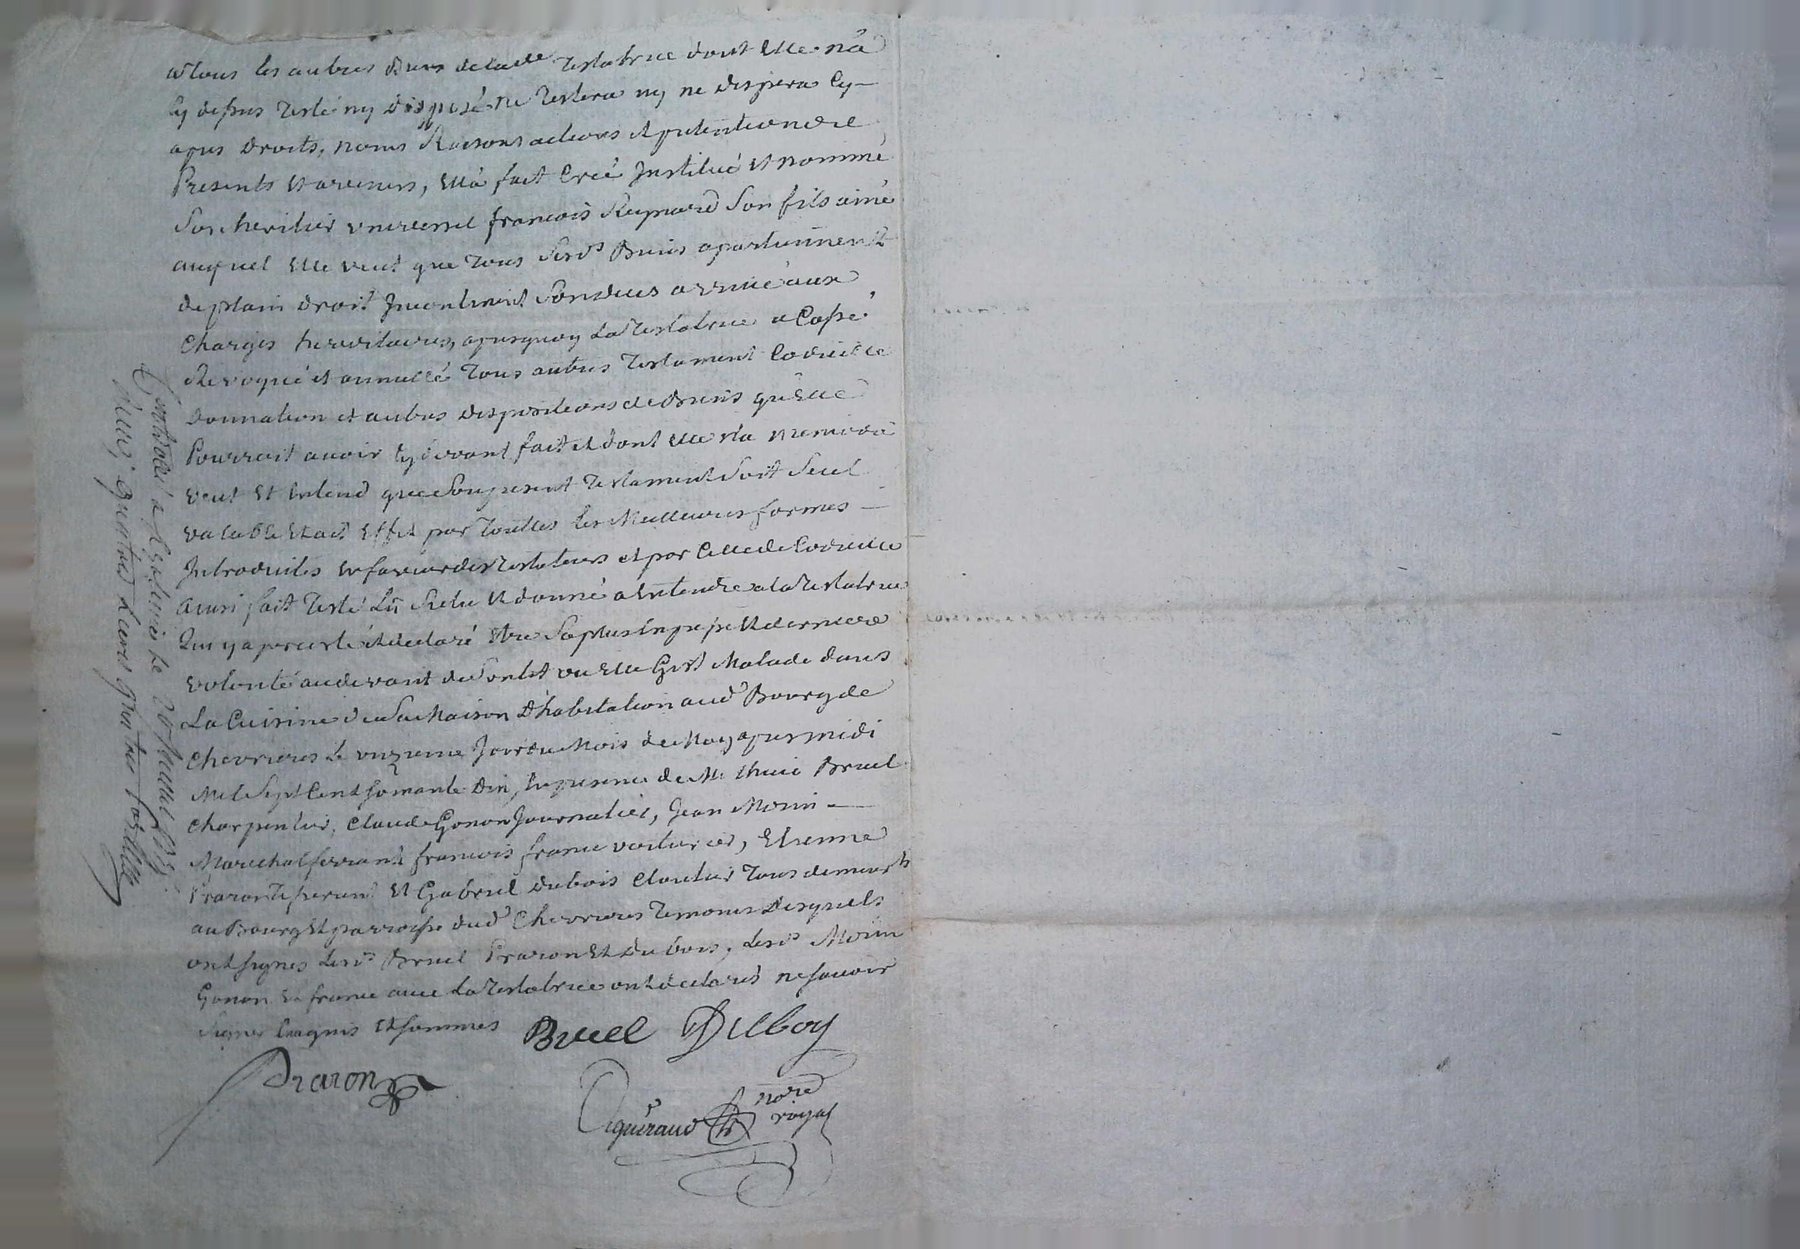 a tous les autres Biens de lade Testatrice dont Elle n'a
Cy dessus Testé ny disposé ne Testera ny ne disposera Cy
apres Droits, noms Raisons actions et pretentions
Presents et avenirs, Ella fait Créé Institué et nommé
Son heritier universel francois Reynard Son fils ainé
auquel Elle veut que Tous Sesd.s Biens apartiennent
de plain droit Incontinent Son deces arrivé aux
Charges hereditaires, apres quoy La Testatrice a Cassé
Revoqué et annullé Tous autres Testament Codicille
Donnation et autres dispositions de Biens qu'Elle
Pourroit avoir Cy devant fait et dont Elle n'a memoire
Veut Et Entend que Son present Testament Soit Seul
valable Et ait Effet par Touttes les Meilleures formes
Introduites En faveur des Testateurs et par Celle de Codicille
Ainsi fait Testé Lû Relu Et donné a Entendre a la Testatrice
Qui y a percisté et declaré Etre Sa plus Expresse Et derniere
volonté au devant de Son lit ou Elle Gist Malade dans
La Cuisine de Sa Maison D'habitation aud Bourg de
Chevrieres Le onzieme Jour du Mois de May apres midi
Mil Sept Cent soixante Dix, En presence de Bruel
Charpentier, Claude Gonon Journalier, Jean Morin
Marechal ferrant francois france voiturier, Etienne
Praron Tisserant Et Gabriel dubois Cloutier Tous demeurts
au Bourg Et parroisse dud Chevrieres Temoins Desquels
ont signés Lesd.s Bruel Praron Et Dubois, Lesd.s Morin
Gonon Et france avec La Testatrice ont declarés ne savoir
Signer Enquis Et sommés
Bruel Duboy
Praron
Nore
royal
Controllé a le 20